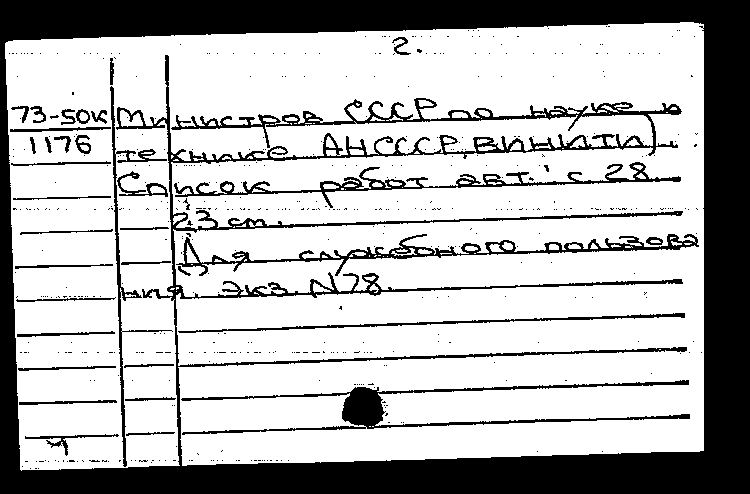 2.
73-50к Министров СССР по науке и
1176 технике. АН СССР, ВИНИТИ).
Список работ авт.: с 28
23 cm.
Для служебного пользова
ния. Экз. N78.